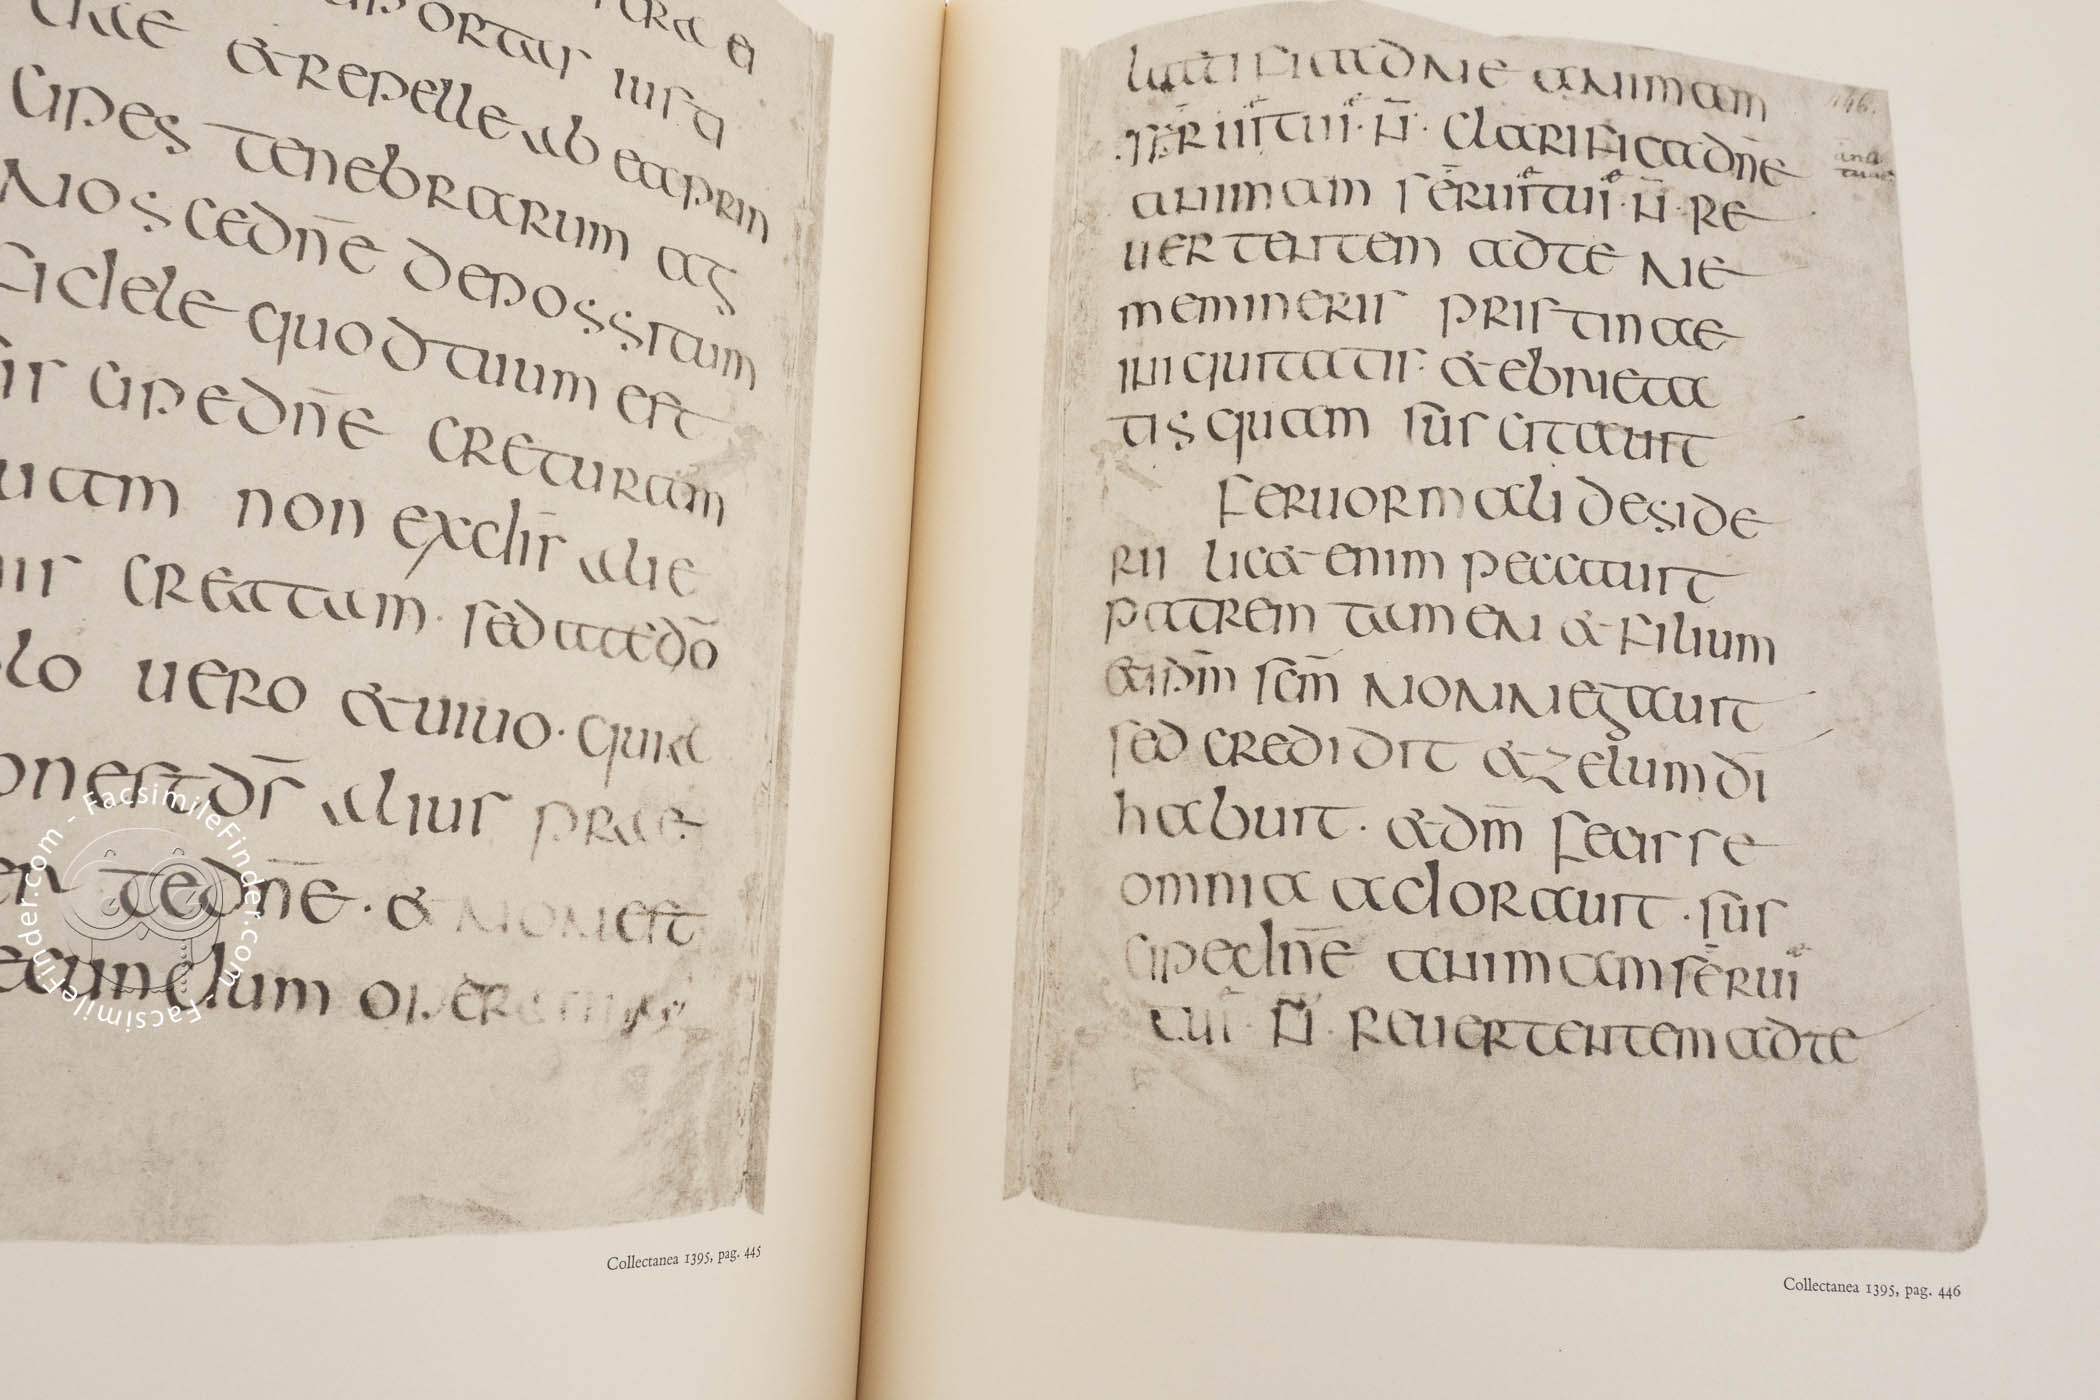 ei & repelle ab ea prin
cipes tenebrarum ag
noscedn̄e depossitum
fidele quod tuum est
sucipedn̄e creturam
tuam non exdīs alie
nis creatam · sed ac eōdō
solo uero & uiuo · quia
non est dr̄ alius prae
ter tedn̄e · & non est
secundum opera tua
Collectanea 1395, pag. 445
446.
lætificadne animam
seruītuī · n̄ · clarificadn̄e
animam seruītuī · n̄ · re
uertentem adte ne
memineris pristinae
iniquitatis · & ebrieta
tis quam sūscitauit
feruor mali deside
rii lic& enim peccauit
patrem tamen & filium
& sp̄m sc̄m non negauit
sed credidit & zelum dī
habuit · & dm̄ fecisse
omnia adorauit · sūs
cipe dn̄e animam seruī
tuī · n̄ · reuertentem adte
Collectanea 1395, pag. 446
FacsimileFinder.com - FacsimileFinder.com